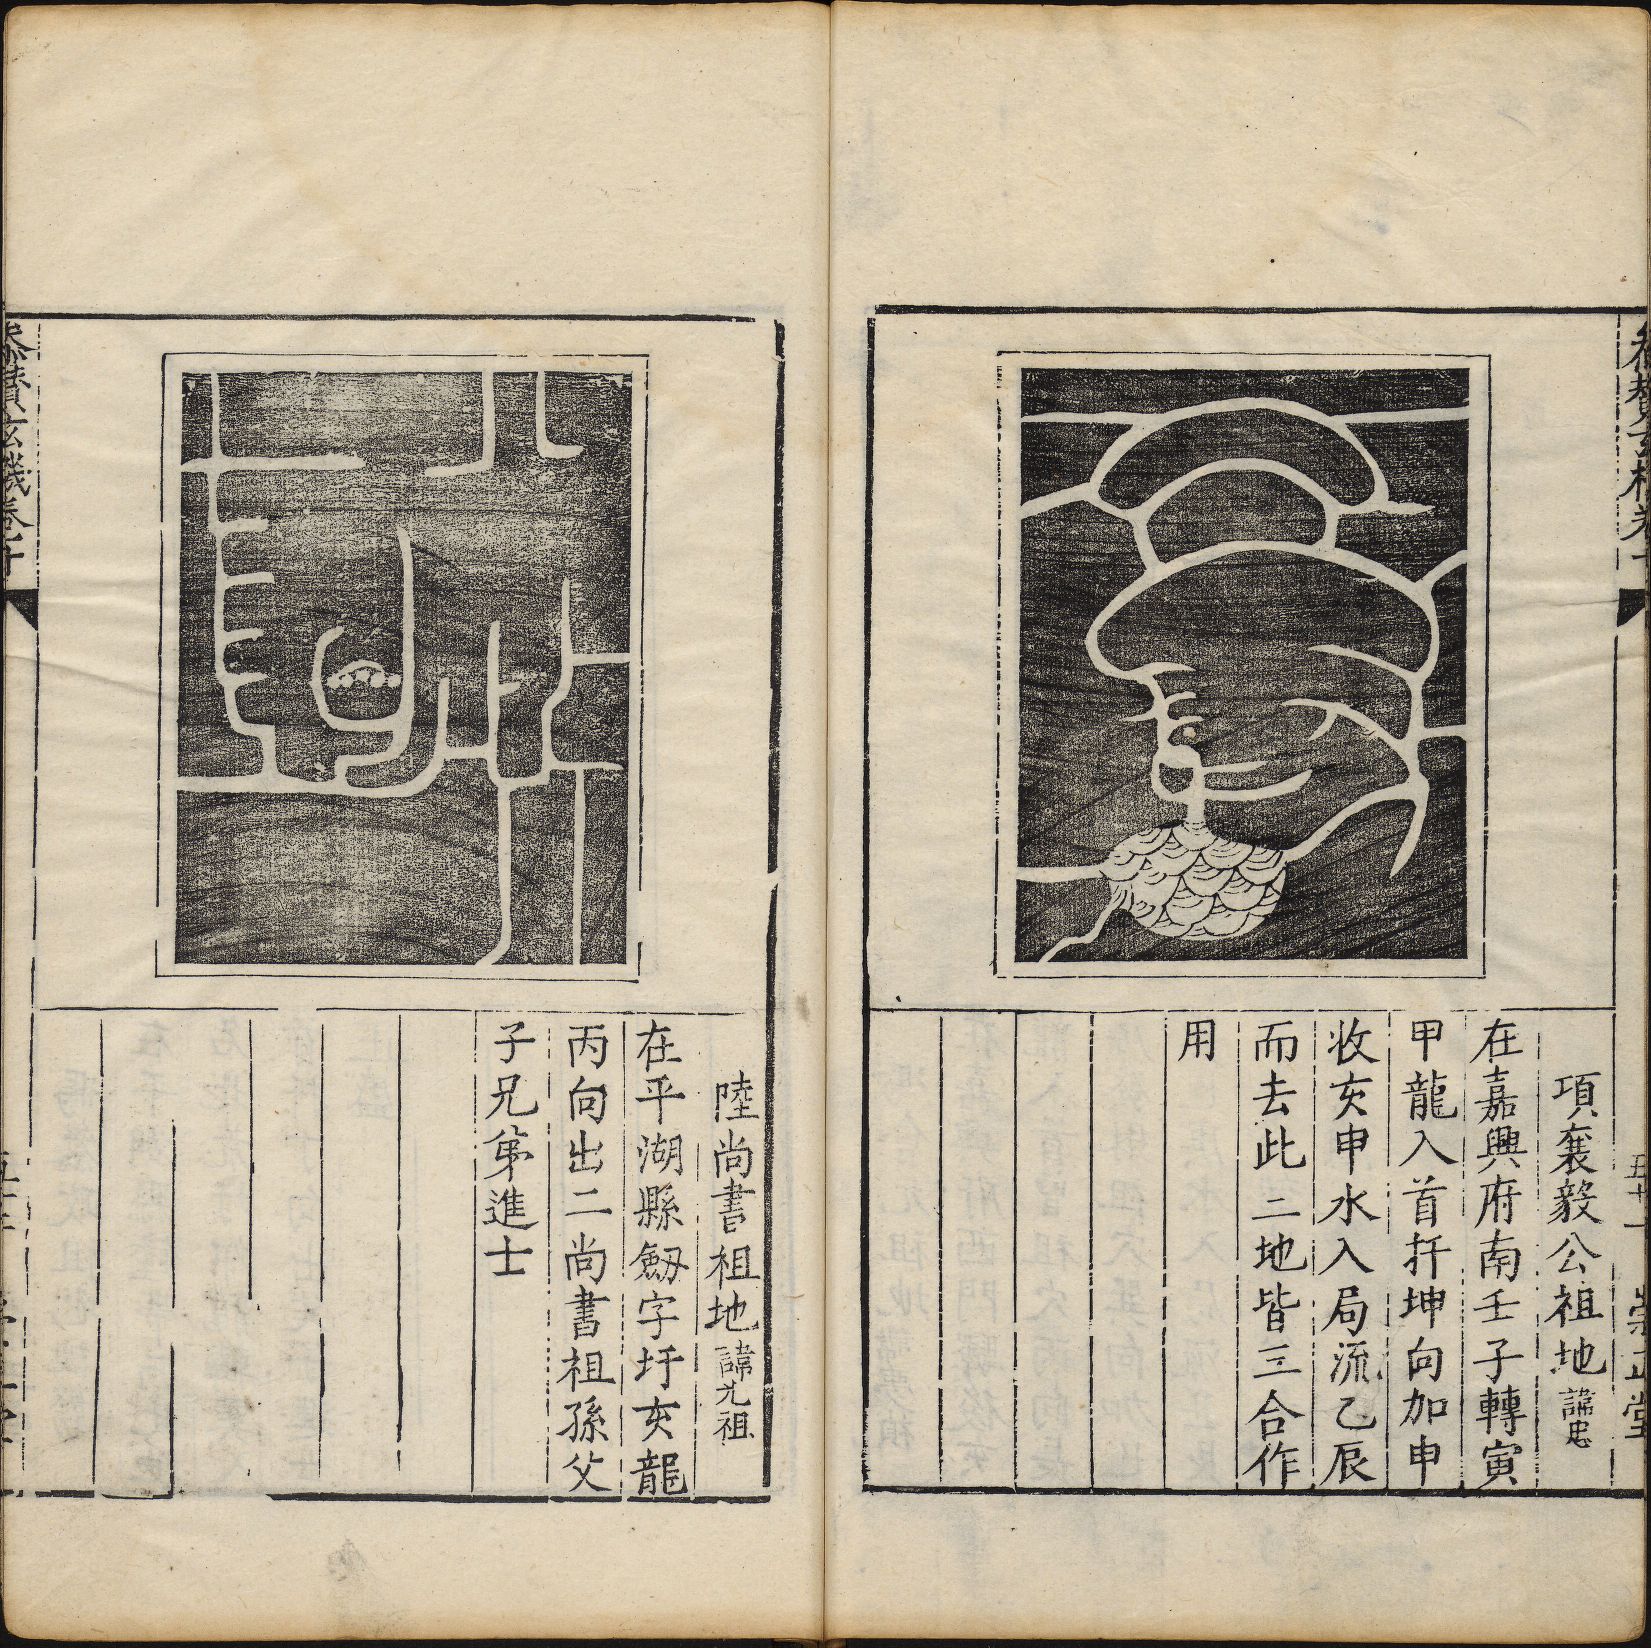 項襄毅公祖地 諱忠
在嘉興府南壬子轉寅
甲龍入首扦坤向加申
收亥申水入局流乙辰
而去此二地皆三合作
用
五十一
崇正堂
陸尚書祖地 諱光祖
在平湖縣劔字圩亥龍
丙向出二尚書祖孫父
子兄弟進士